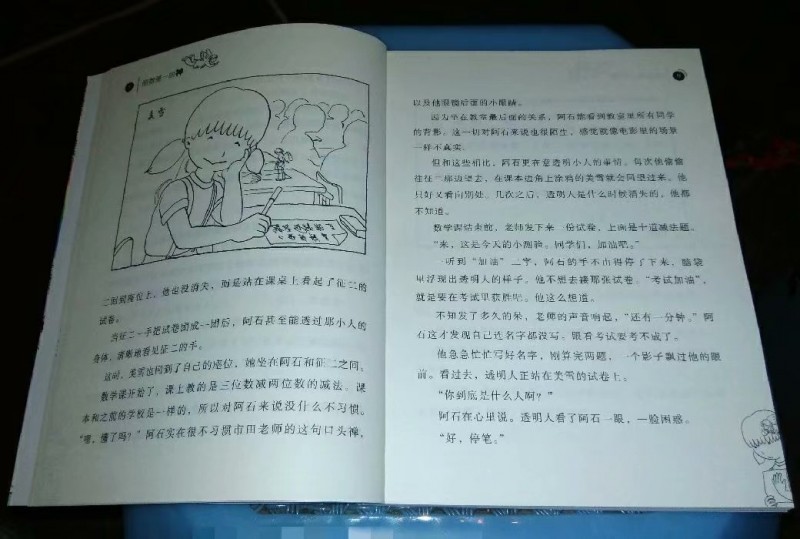 美雪
二回到座位上，他也没消失，而是站在课桌上看起了征二的
试卷。
当征二一手把试卷团成一团后，阿石甚至能透过那小人的
身体，清晰地看见征二的手。
这时，美雪也回到了自己的座位，她坐在阿石和征二之间。
数学课开始了，课上教的是三位数减两位数的减法。进
本和之前的学校是一样的，所以对阿石来说没什么不习惯。
“喂，懂了吗？”阿石实在很不习惯市田老师的这句口头禅，
以及他眼镜后面的小眼睛。
因为坐在教室最后面的关系，阿石能看到教室里所有同学
的背影，这一切对阿石来说也很陌生，感觉就像电影里的场景
一样不真实。
但和这些相比，阿石更在意透明小人的事情。每次他偷偷
往征二那边望去，在课本边角上涂鸦的美雪就会回望过来。他
只好又看向别处。几次之后，透明人是什么时候消失的，他都
不知道。
数学课结束前，老师发下来一份试卷，上面是十道减法题。
“来，这是今天的小测验。同学们，加油吧。”
一听到“加油”二字，阿石的手不由得停了下来，脑袋
里浮现出透明人的样子。他不想去碰那张试卷。“考试加油”，
就是要在考试里获胜吧。他这么想道。
不知发了多久的呆，老师的声音响起，“还有一分钟。”阿
石这才发现自己连名字都没写。眼看考试要考不成了。
他急急忙忙写好名字，刚算完两题，一个影子飘过他的眼
前。看过去，透明人正站在美雪的试卷上。
“你到底是什么人啊？”
阿石在心里说。透明人看了阿石一眼，一脸困惑。
“好，停笔。”